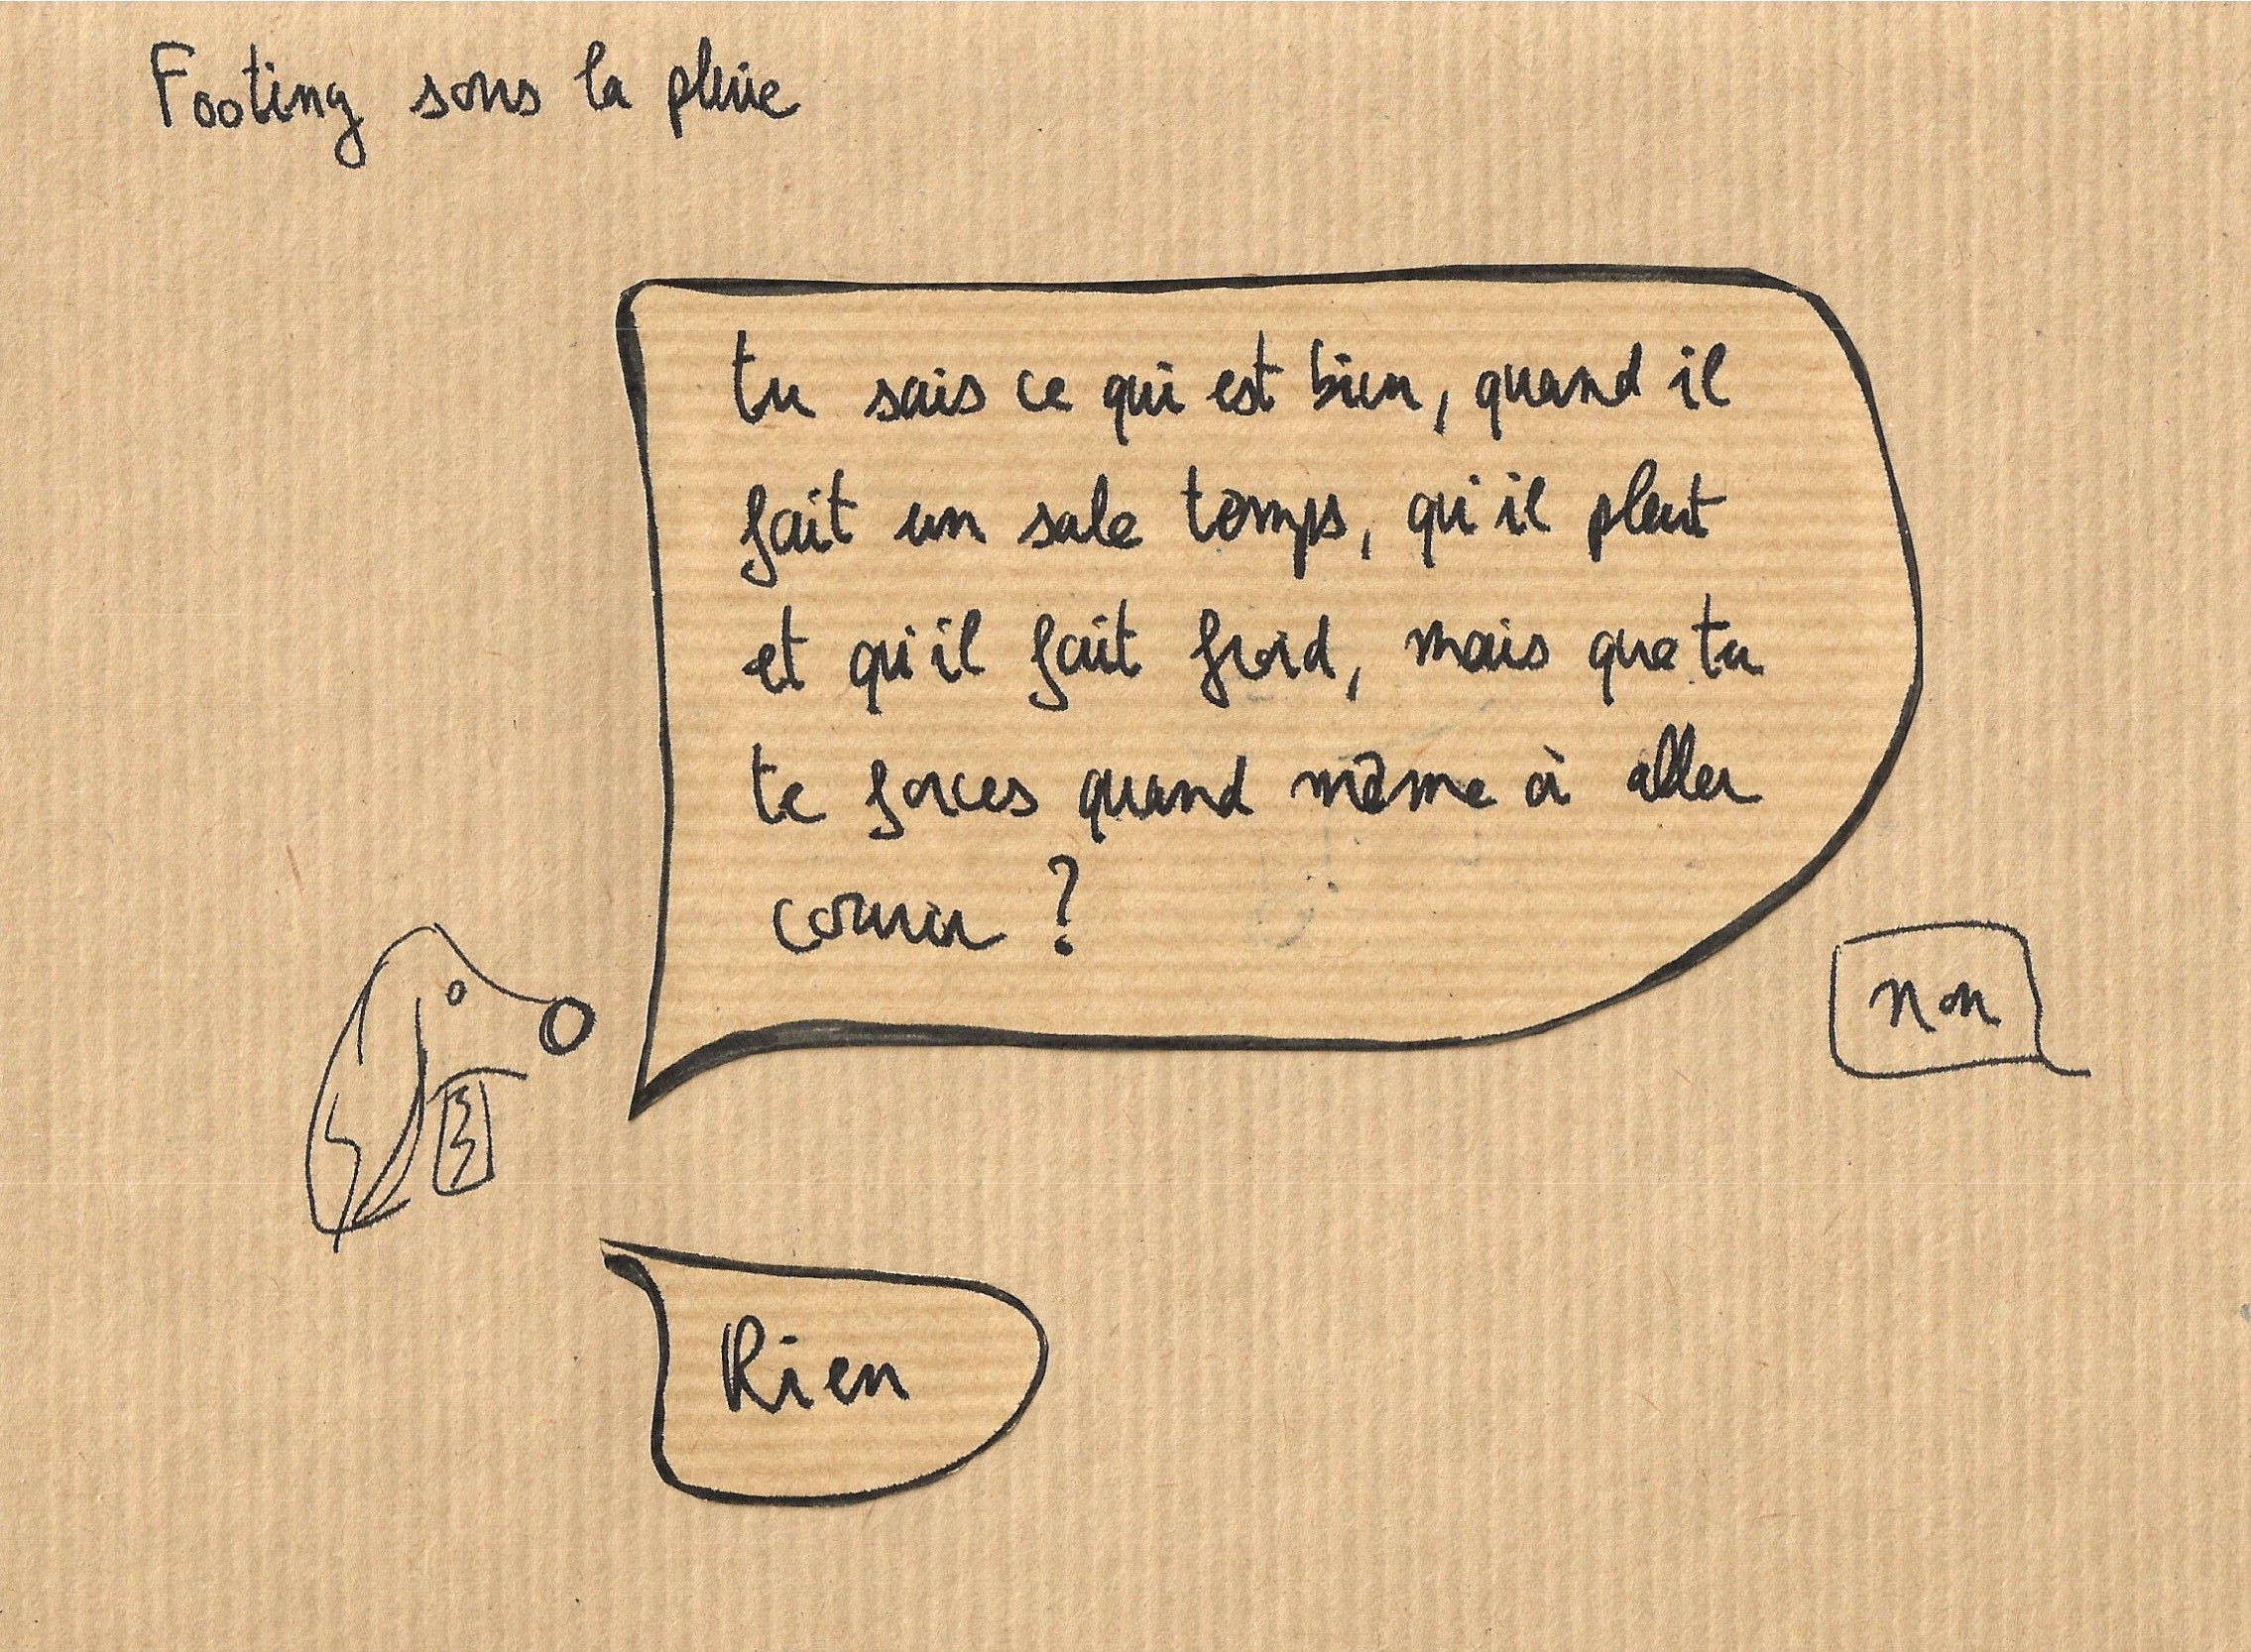 Footing sous la pluie
tu sais ce qui est bien, quand il
fait un sale temps, qu'il pleut
et qu'il fait froid, mais que tu
te forces quand même à aller
courir ?
non
Rien